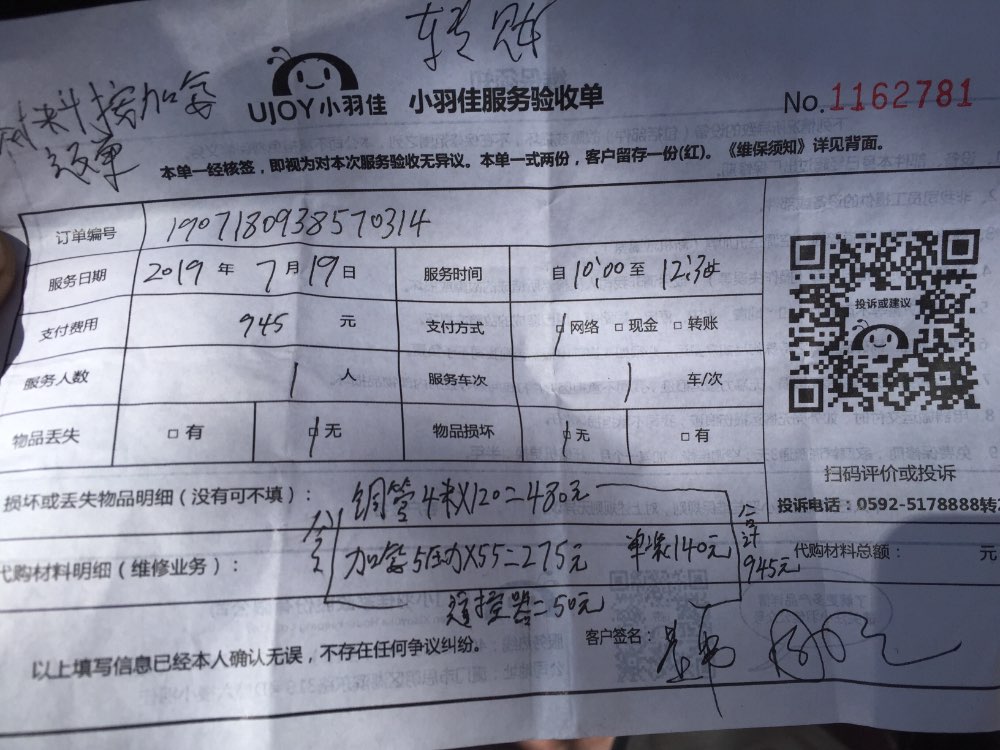 转账
材料按加氨
返单
UJOY小羽佳 小羽佳服务验收单
No.1162781
本单一经核签，即视为对本次服务验收无异议。本单一式两份，客户留存一份(红)。《维保须知》详见背面。
订单编号 1907180938570314
服务日期 2019 年 7 月 19 日 服务时间 自 10:00 至 12:30
支付费用 945 元 支付方式 网络 □ 现金 □ 转账
投诉或建议
服务人数 1 人 服务车次 1 车/次
物品丢失 □ 有 无 物品损坏 无 □ 有
扫码评价或投诉
投诉电话：0592-5178888转2
损坏或丢失物品明细（没有可不填）： 铜管4米X120=480元
代购材料明细（维修业务）： 加氨5压力X55=275元 单洗140元
合计
945元
代购材料总额： 元
遥控器=50元
以上填写信息已经本人确认无误，不存在任何争议纠纷。
客户签名：